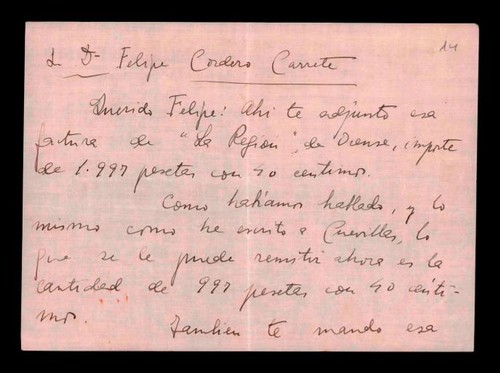 14
a Dn Felipe Cordero Carrete
Querido Felipe: Ahi te adjunto esa
factura de "La Región", de Orense, importe
de 1.997 pesetas con 40 centimos.
Como habíamos hablado, y lo
mismo como he escrito a Cuevillas, lo
que se le puede remitir ahora es la
cantidad de 997 pesetas con 40 cénti-
mos.
Tambien te mando esa